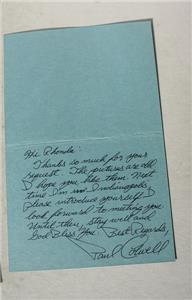 Hi Rhonda:
Thanks so much for your
request. The pictures are old.
I hope you like them. Next
time I'm in Indianapolis,
please introduce yourself. I
look forward to meeting you.
Until then, stay well and
God Bless You. Best Regards,
Paul Colwell